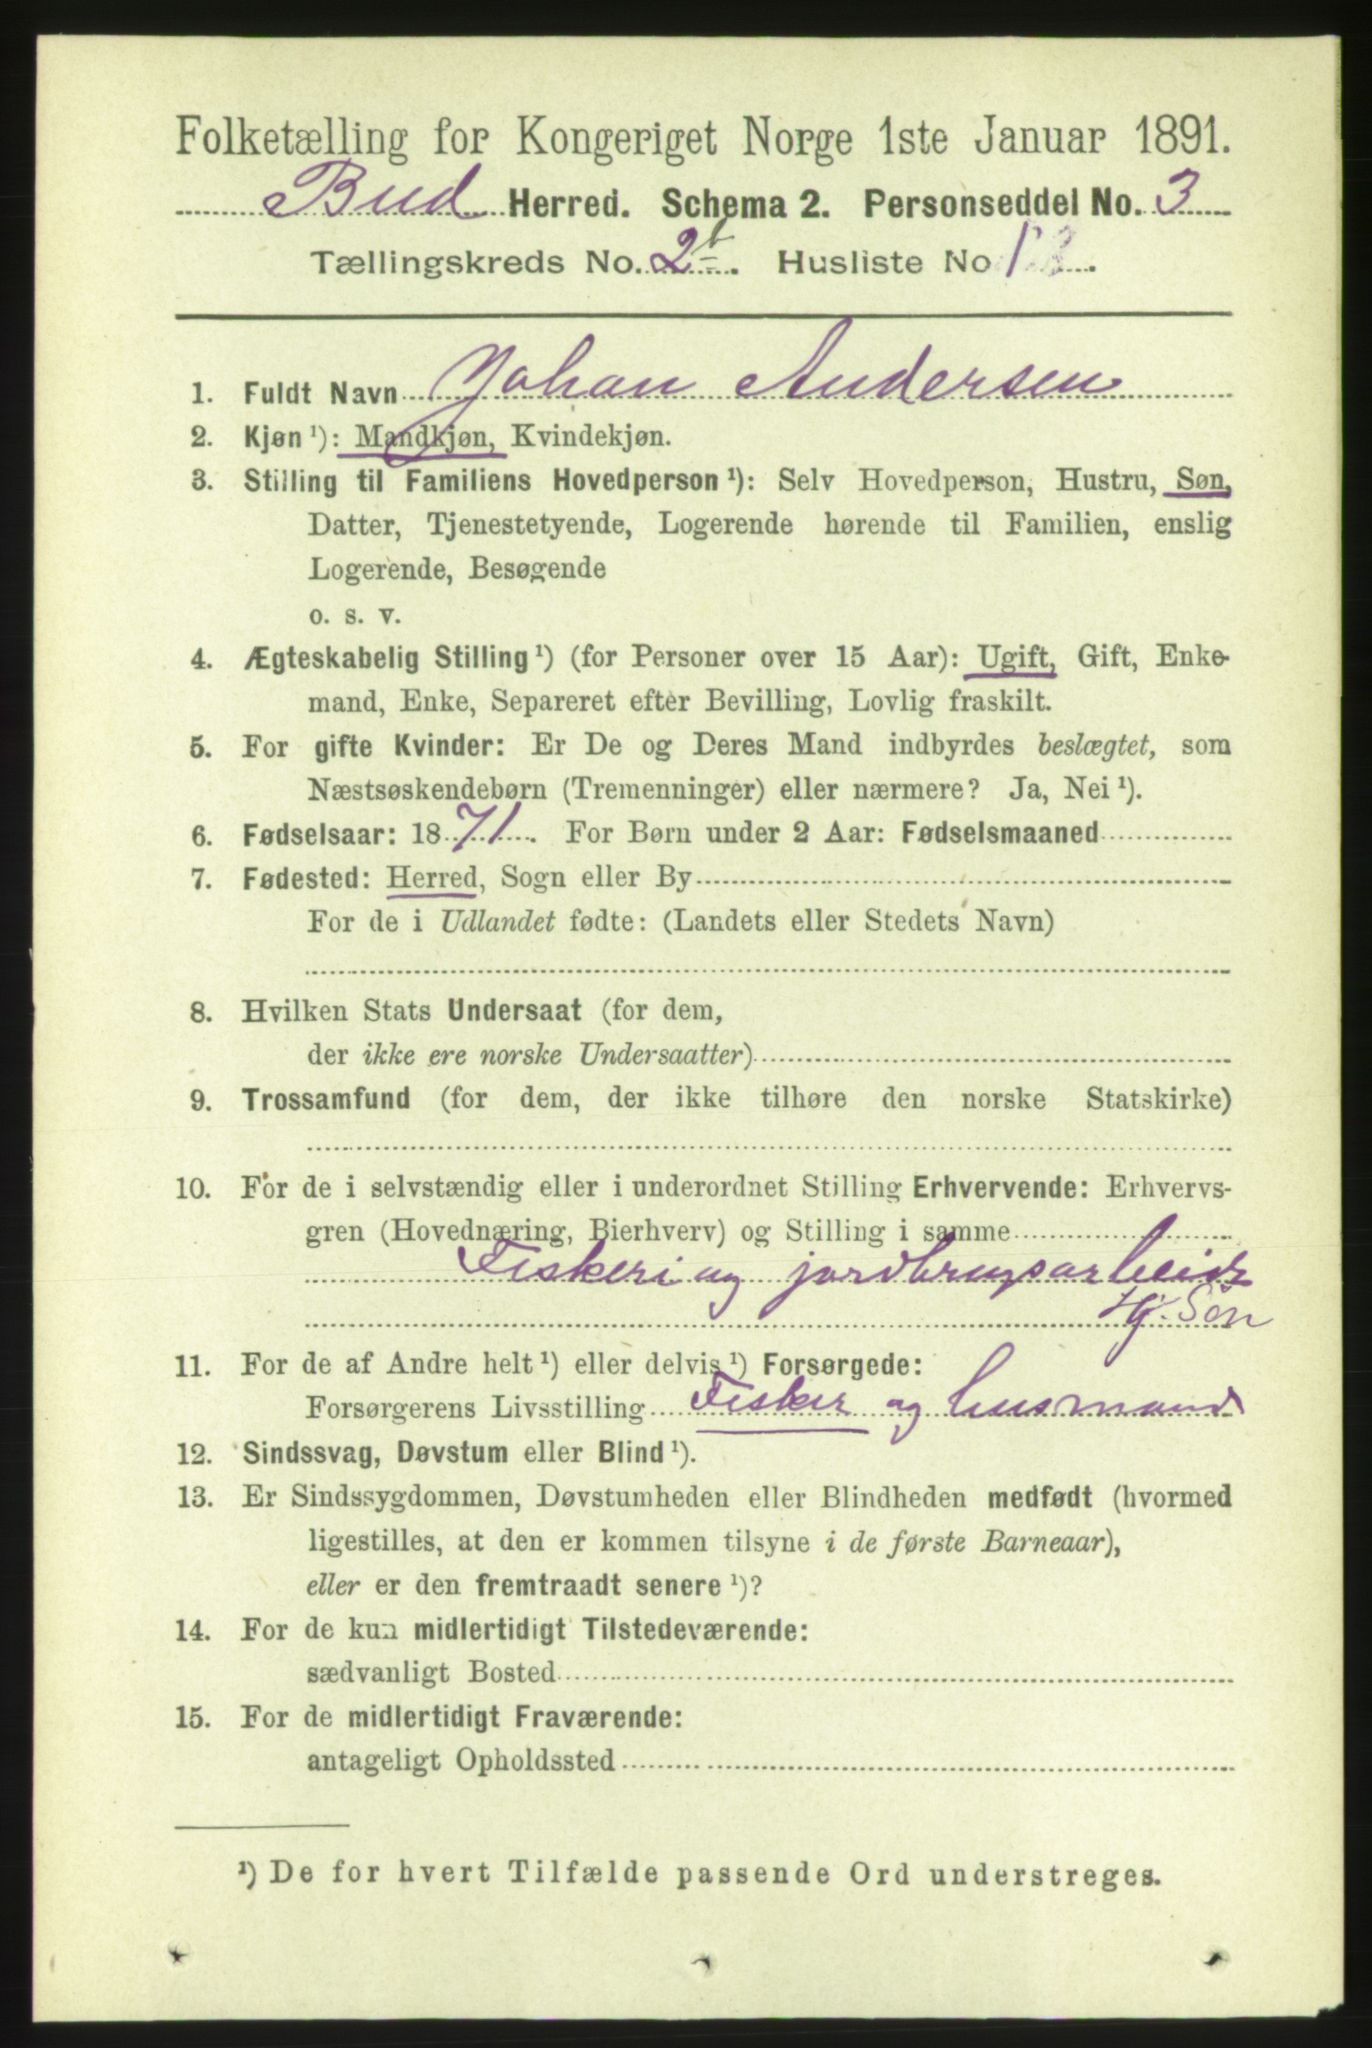 Folketælling for Kongeriget Norge 1ste Januar 1891.
Bud Herred. Schema 2. Personseddel No. 3
Tællingskreds No. 2b. Husliste No 1.
1. Fuldt Navn Johan Andersen
2. Kjøn¹): Mandkjøn, Kvindekjøn.
3. Stilling til Familiens Hovedperson¹): Selv Hovedperson, Hustru, Søn,
Datter, Tjenestetyende, Logerende hørende til Familien, enslig
Logerende, Besøgende
o. s. v.
4. Ægteskabelig Stilling¹) (for Personer over 15 Aar): Ugift, Gift, Enke-
mand, Enke, Separeret efter Bevilling, Lovlig fraskilt.
5. For gifte Kvinder: Er De og Deres Mand indbyrdes beslægtet, som
Næstsøskendebørn (Tremenninger) eller nærmere? Ja, Nei¹).
6. Fødselsaar: 1871. For Børn under 2 Aar: Fødselsmaaned
7. Fødested: Herred, Sogn eller By
For de i Udlandet fødte: (Landets eller Stedets Navn)
8. Hvilken Stats Undersaat (for dem,
der ikke ere norske Undersaatter)
9. Trossamfund (for dem, der ikke tilhøre den norske Statskirke)
10. For de i selvstændig eller i underordnet Stilling Erhvervende: Erhvervs-
gren (Hovednæring, Bierhverv) og Stilling i samme
Fiskeri og jordbrugsarbeide
Hj. Søn
11. For de af Andre helt¹) eller delvis¹) Forsørgede:
Forsørgerens Livsstilling Fisker og husmand
12. Sindssvag, Døvstum eller Blind¹).
13. Er Sindssygdommen, Døvstumheden eller Blindheden medfødt (hvormed
ligestilles, at den er kommen tilsyne i de første Barneaar),
eller er den fremtraadt senere¹)?
14. For de kun midlertidigt Tilstedeværende:
sædvanligt Bosted
15. For de midlertidigt Fraværende:
antageligt Opholdssted
¹) De for hvert Tilfælde passende Ord understreges.